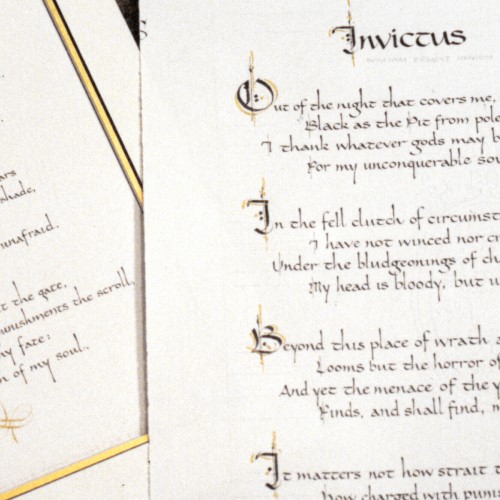 unafraid.
the gate,
the scroll,
fate:
of my soul..
Invictus
Out of the night that covers me,
Black as the Pit from
I thank whatever gods may
For my unconquerable
In the fell clutch of
I have not winced nor
Under the bludgeonings of
My head is bloody, but
Beyond this place of wrath
Looms but the horror of
And yet the menace of the
Finds, and shall find,
It matters not how strait
how charged with